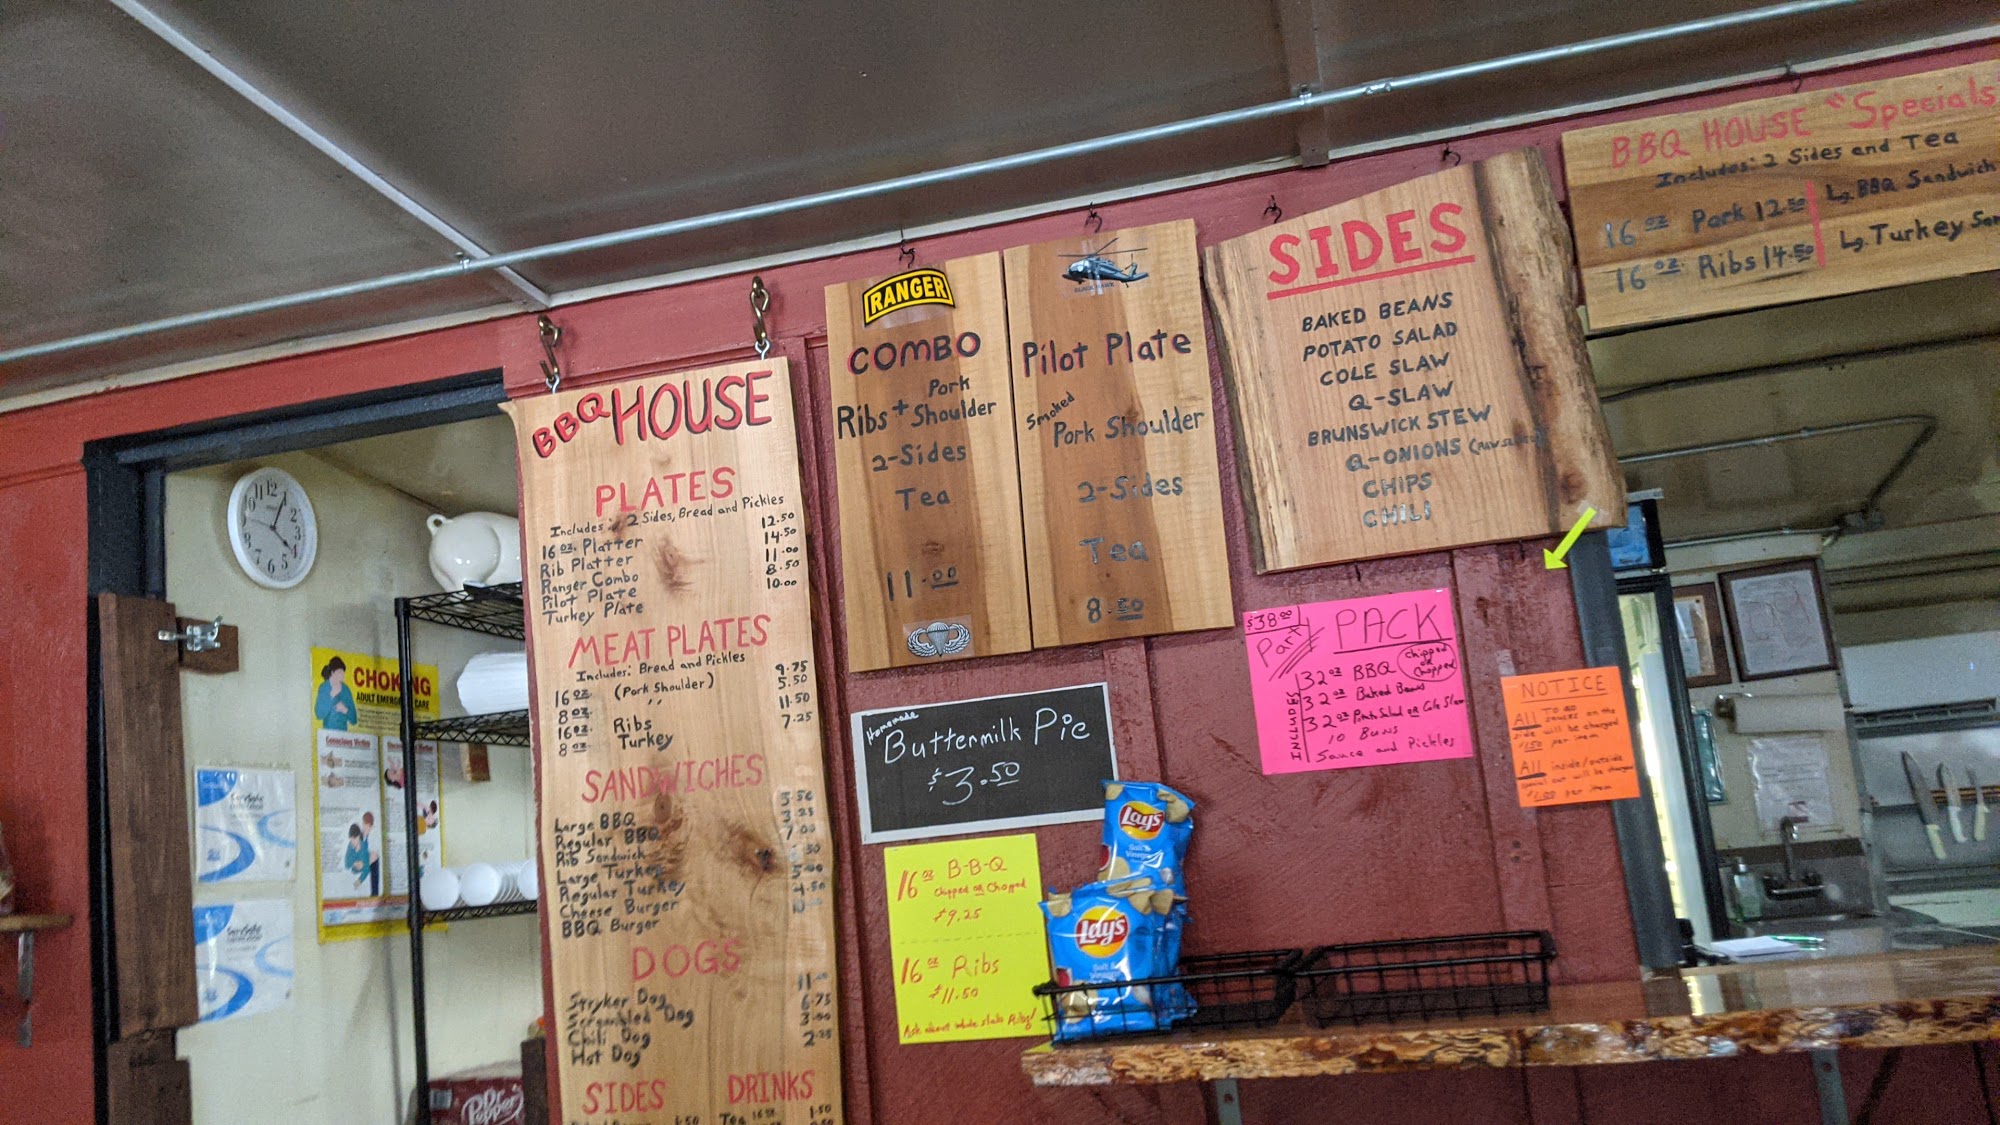 BBQ HOUSE
PLATES
Includes: 2 Sides, Bread and Pickles
16 oz. Platter 12.50
Rib Platter 14.50
Ranger Combo 11.00
Pilot Plate 8.50
Turkey Plate 10.00
MEAT PLATES
Includes: Bread and Pickles
16 oz. (Pork Shoulder) 9.75
8 oz. " 5.50
16 oz. Ribs 11.50
8 oz. Turkey 7.25
SANDWICHES
Large BBQ
Regular BBQ 3.25
Rib Sandwich 7.00
Large Turkey
Regular Turkey
Cheese Burger
BBQ Burger
DOGS
Stryker Dog
Scrambled Dog 6.75
Chili Dog
Hot Dog
SIDES DRINKS
Tea 16 oz. 1.50
RANGER
COMBO
Ribs + Pork Shoulder
2-Sides
Tea
11.00
BLACK HAWK
Pilot Plate
Smoked
Pork Shoulder
2-Sides
Tea
8.50
SIDES
BAKED BEANS
POTATO SALAD
COLE SLAW
Q-SLAW
BRUNSWICK STEW
Q-ONIONS
CHIPS
CHILI
BBQ HOUSE "Specials
Includes: 2 Sides and Tea
16 oz Pork 12.50
16 oz. Ribs 14.50
Lg. BBQ Sandwich
Lg. Turkey
Homemade
Buttermilk Pie
$3.50
16 oz B-B-Q
Chipped or Chopped
$9.25
16 oz Ribs
$11.50
Ask about whole slab Ribs!
$38.00
Party PACK
INCLUDES
32 oz BBQ Chipped or Chopped
32 oz Baked Beans
32 oz Potato Salad or Cole Slaw
10 Buns
Sauce and Pickles
NOTICE
All TO GO
sauces on the
side will be charged
per item
All inside/outside
will be charged
per item
Lay's
Salt &
Vinegar
Lay's
Salt &
Vinegar
CHOKING
ADULT EMERGENCY CARE
Conscious Victim
ServSafe
ServSafe
Dr Pepper